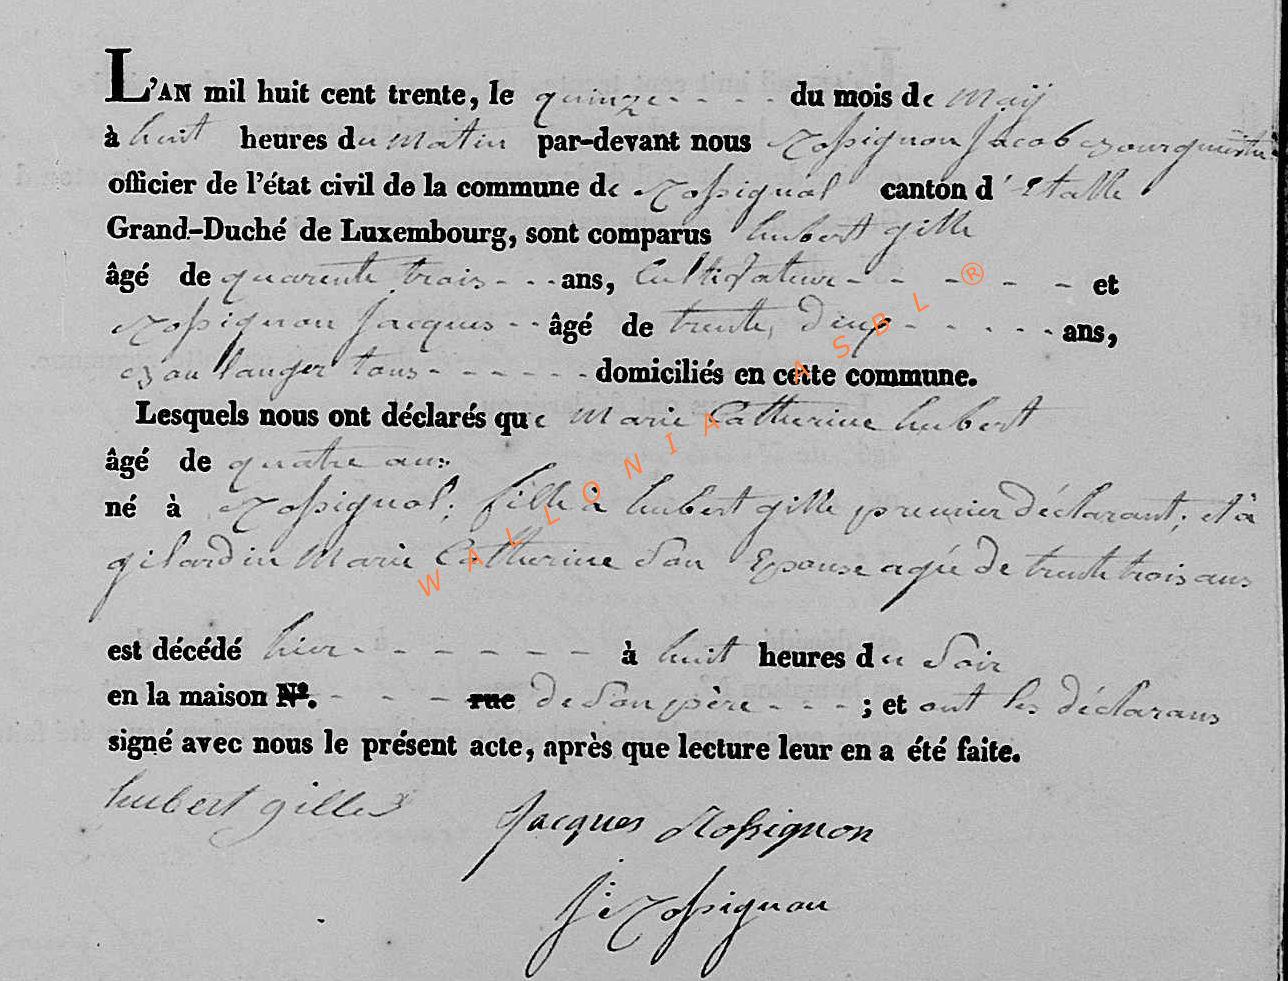 L'AN mil huit cent trente, le quinze - - - - du mois de maÿ
à huit heures du matin par-devant nous Rossignon Jacob bourguemestre
officier de l'état civil de la commune de Rossignol canton d'Etalle
Grand-Duché de Luxembourg, sont comparus hubert gille
âgé de quarente trois - - - ans, Cultivateur - - - - - - et
Rossignon Jacques - - âgé de trente, deux - - - - - - ans,
boulanger tous - - - - - - domiciliés en cette commune.
Lesquels nous ont déclarés que Marie Catherine hubert
âgé de quatre ans
né à Rossignol; fille à hubert gille premier déclarant; et à
gilardin Marie Catherine son Epouse agée de trente trois ans
est décédé hier - - - - - - à huit heures du soir
en la maison Nº. - - - rue de son père - - - ; et ont les déclarans
signé avec nous le présent acte, après que lecture leur en a été faite.
hubert gilles
Jacques Rossignon
J: Rossignon
WALLONIA ASBL ®